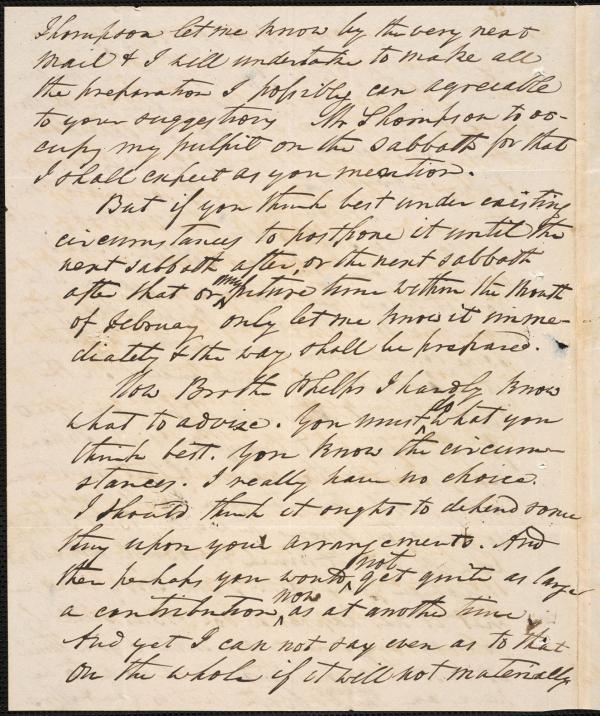 Thompson let me know by the very next
mail & I will undertake to make all
the preparation I possibly can agreeable
to your suggestions Mr Thompson to oc-
cupy my pulpit on the Sabbath for that
I shall expect as you mention.
But if you think best under existing
circumstances to postpone it until the
next Sabbath after, or the next Sabbath
after that or any future time within the month
of February only let me know it imme-
diately & the way shall be prepared.
Now Brother Phelps I hardly know
what to advise. You must do what you
think best. You know the circum-
stances. I really have no choice
I should think it ought to depend some
thing upon your arrangements. And
then perhaps you would not get quite as large
a contribution now as at another time
And yet I can not say even as to that
On the whole if it will not materially